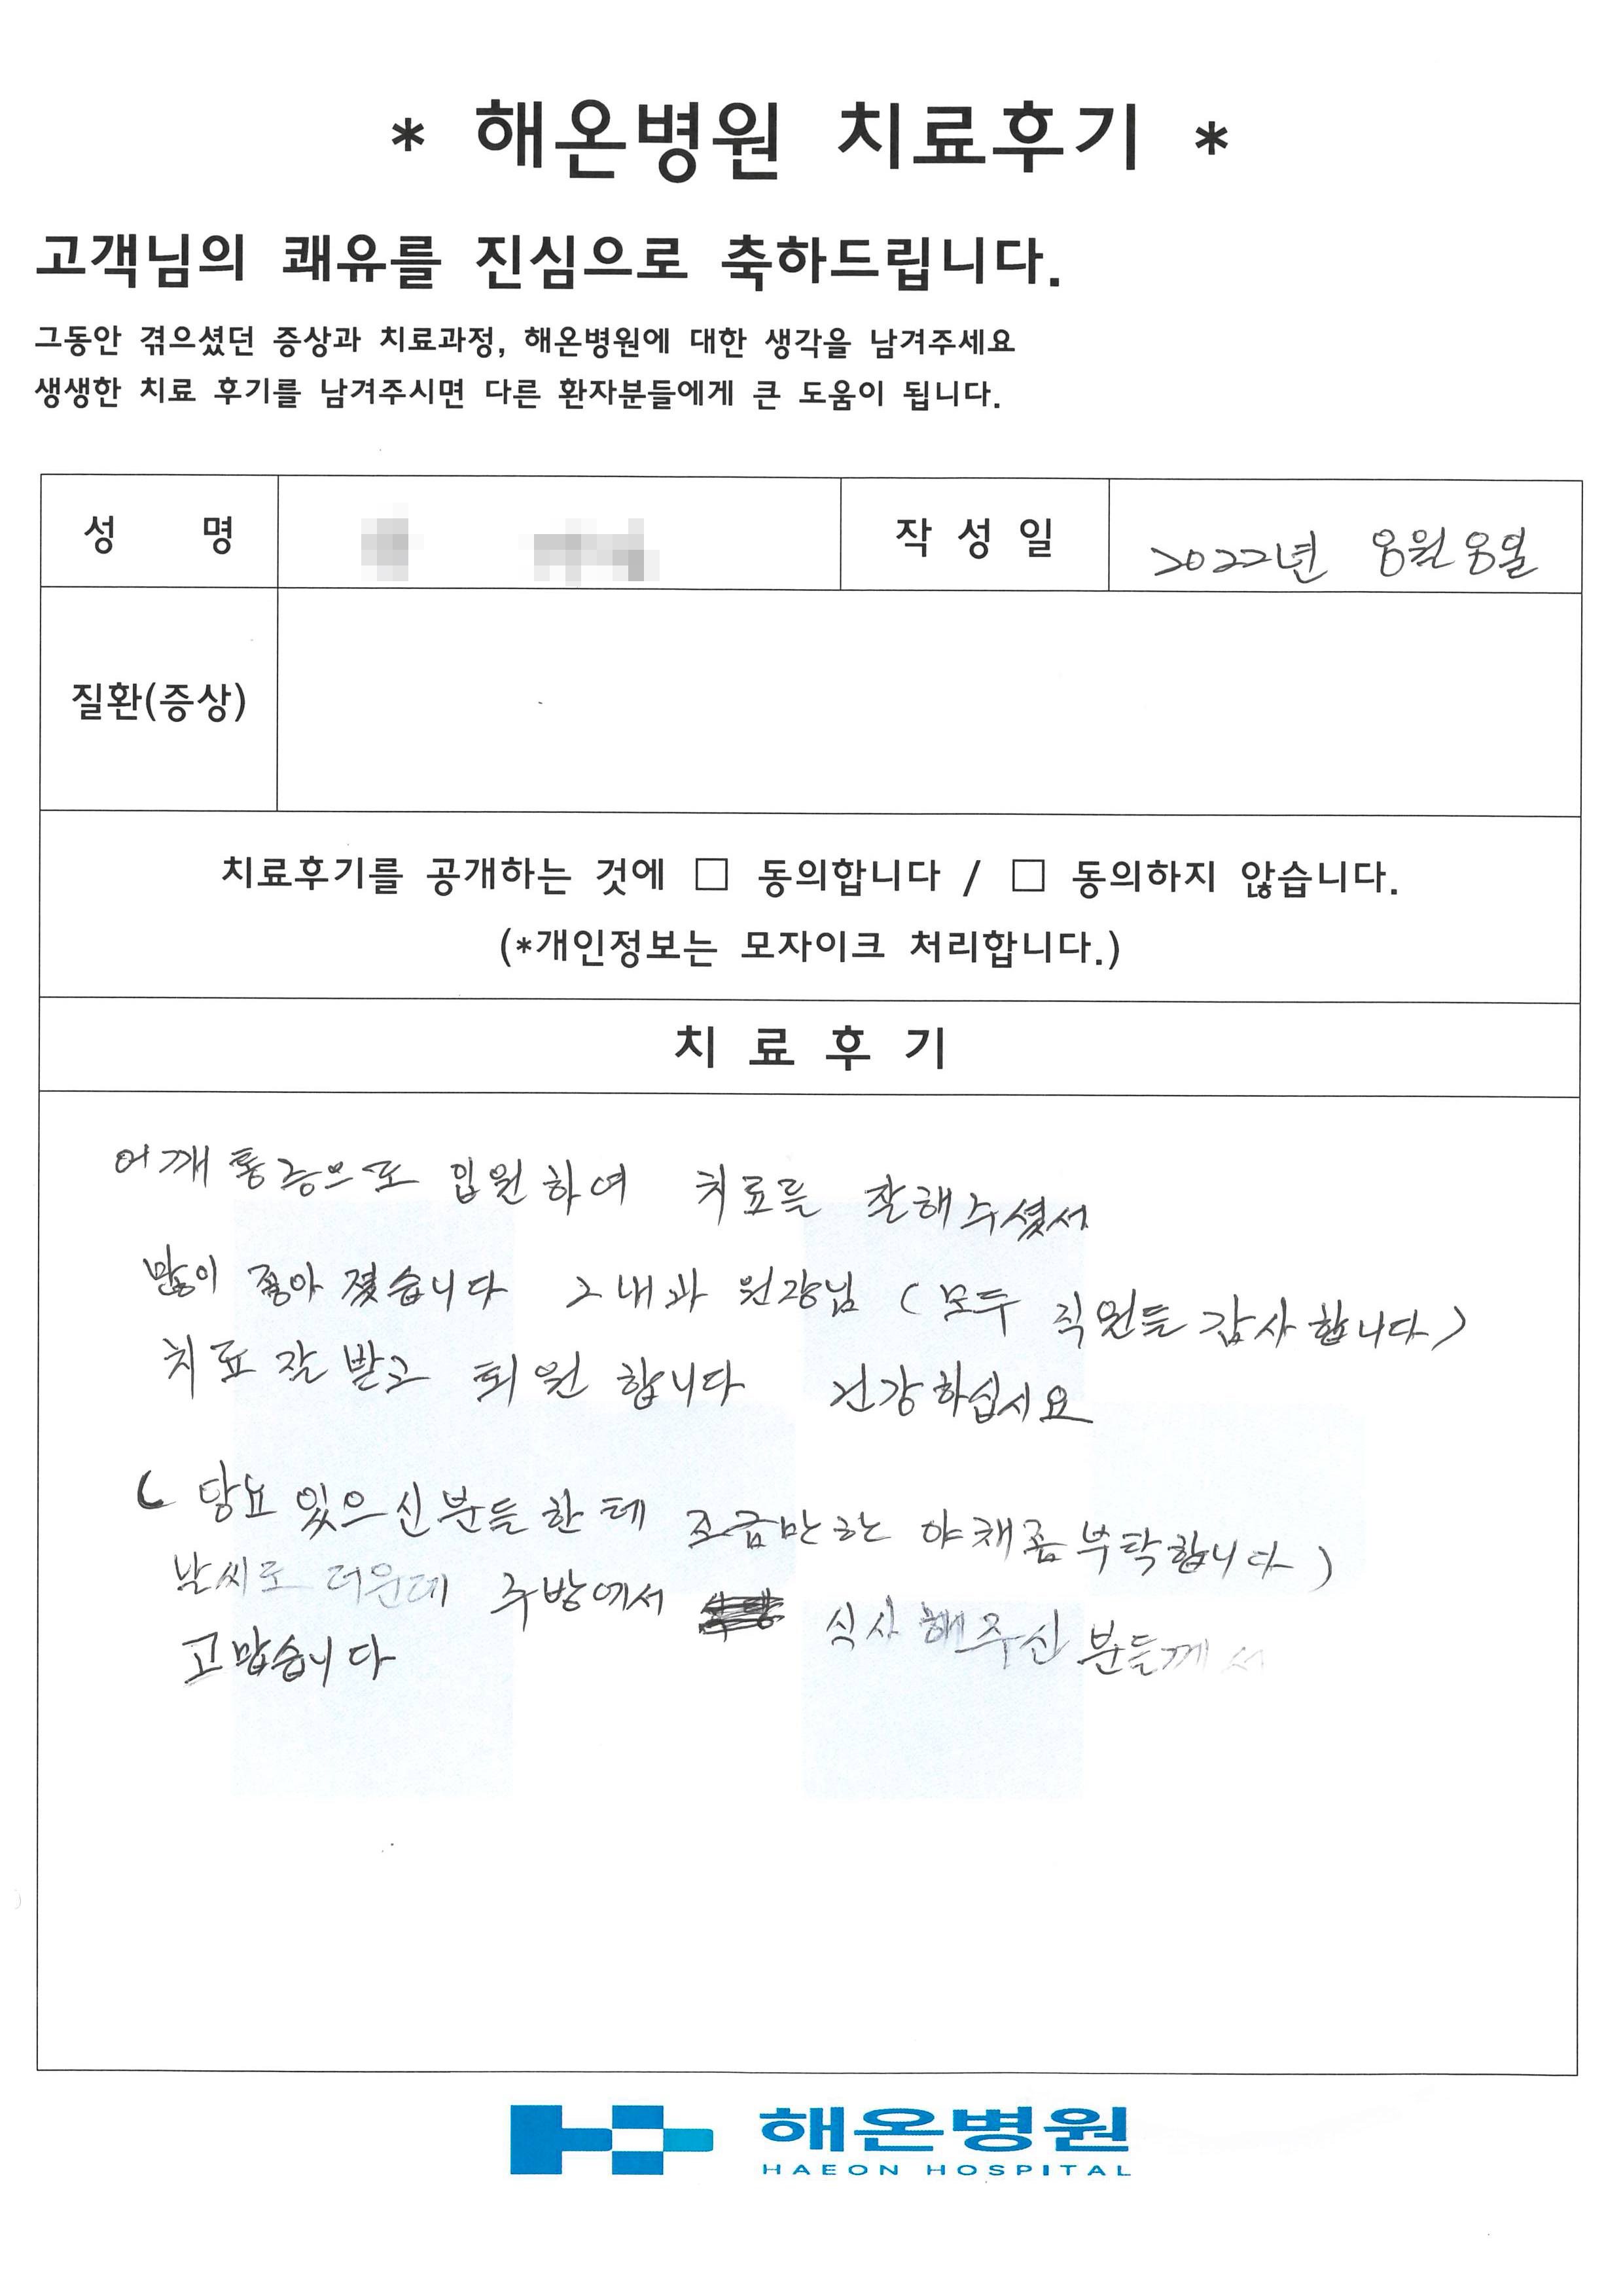 * 해온병원 치료후기 *
고객님의 쾌유를 진심으로 축하드립니다.
그동안 겪으셨던 증상과 치료과정, 해온병원에 대한 생각을 남겨주세요
생생한 치료 후기를 남겨주시면 다른 환자분들에게 큰 도움이 됩니다.
성 명 작 성 일 2022년 8월 8일
질환(증상)
치료후기를 공개하는 것에 □ 동의합니다 / □ 동의하지 않습니다.
(*개인정보는 모자이크 처리합니다.)
치 료 후 기
어깨 통증으로 입원 하여 치료를 잘해주셨서
많이 좋아 졌습니다 2내과 원장님 (모두 직원들 감사합니다)
치료 잘 받고 퇴원 합니다 건강하십시요
( 당뇨 있으신분들 한테 조금만 야채좀 부탁합니다)
날씨도 더운데 주방에서 식사 해주신 분들께서
고맙습니다
해온병원
HAEON HOSPITAL